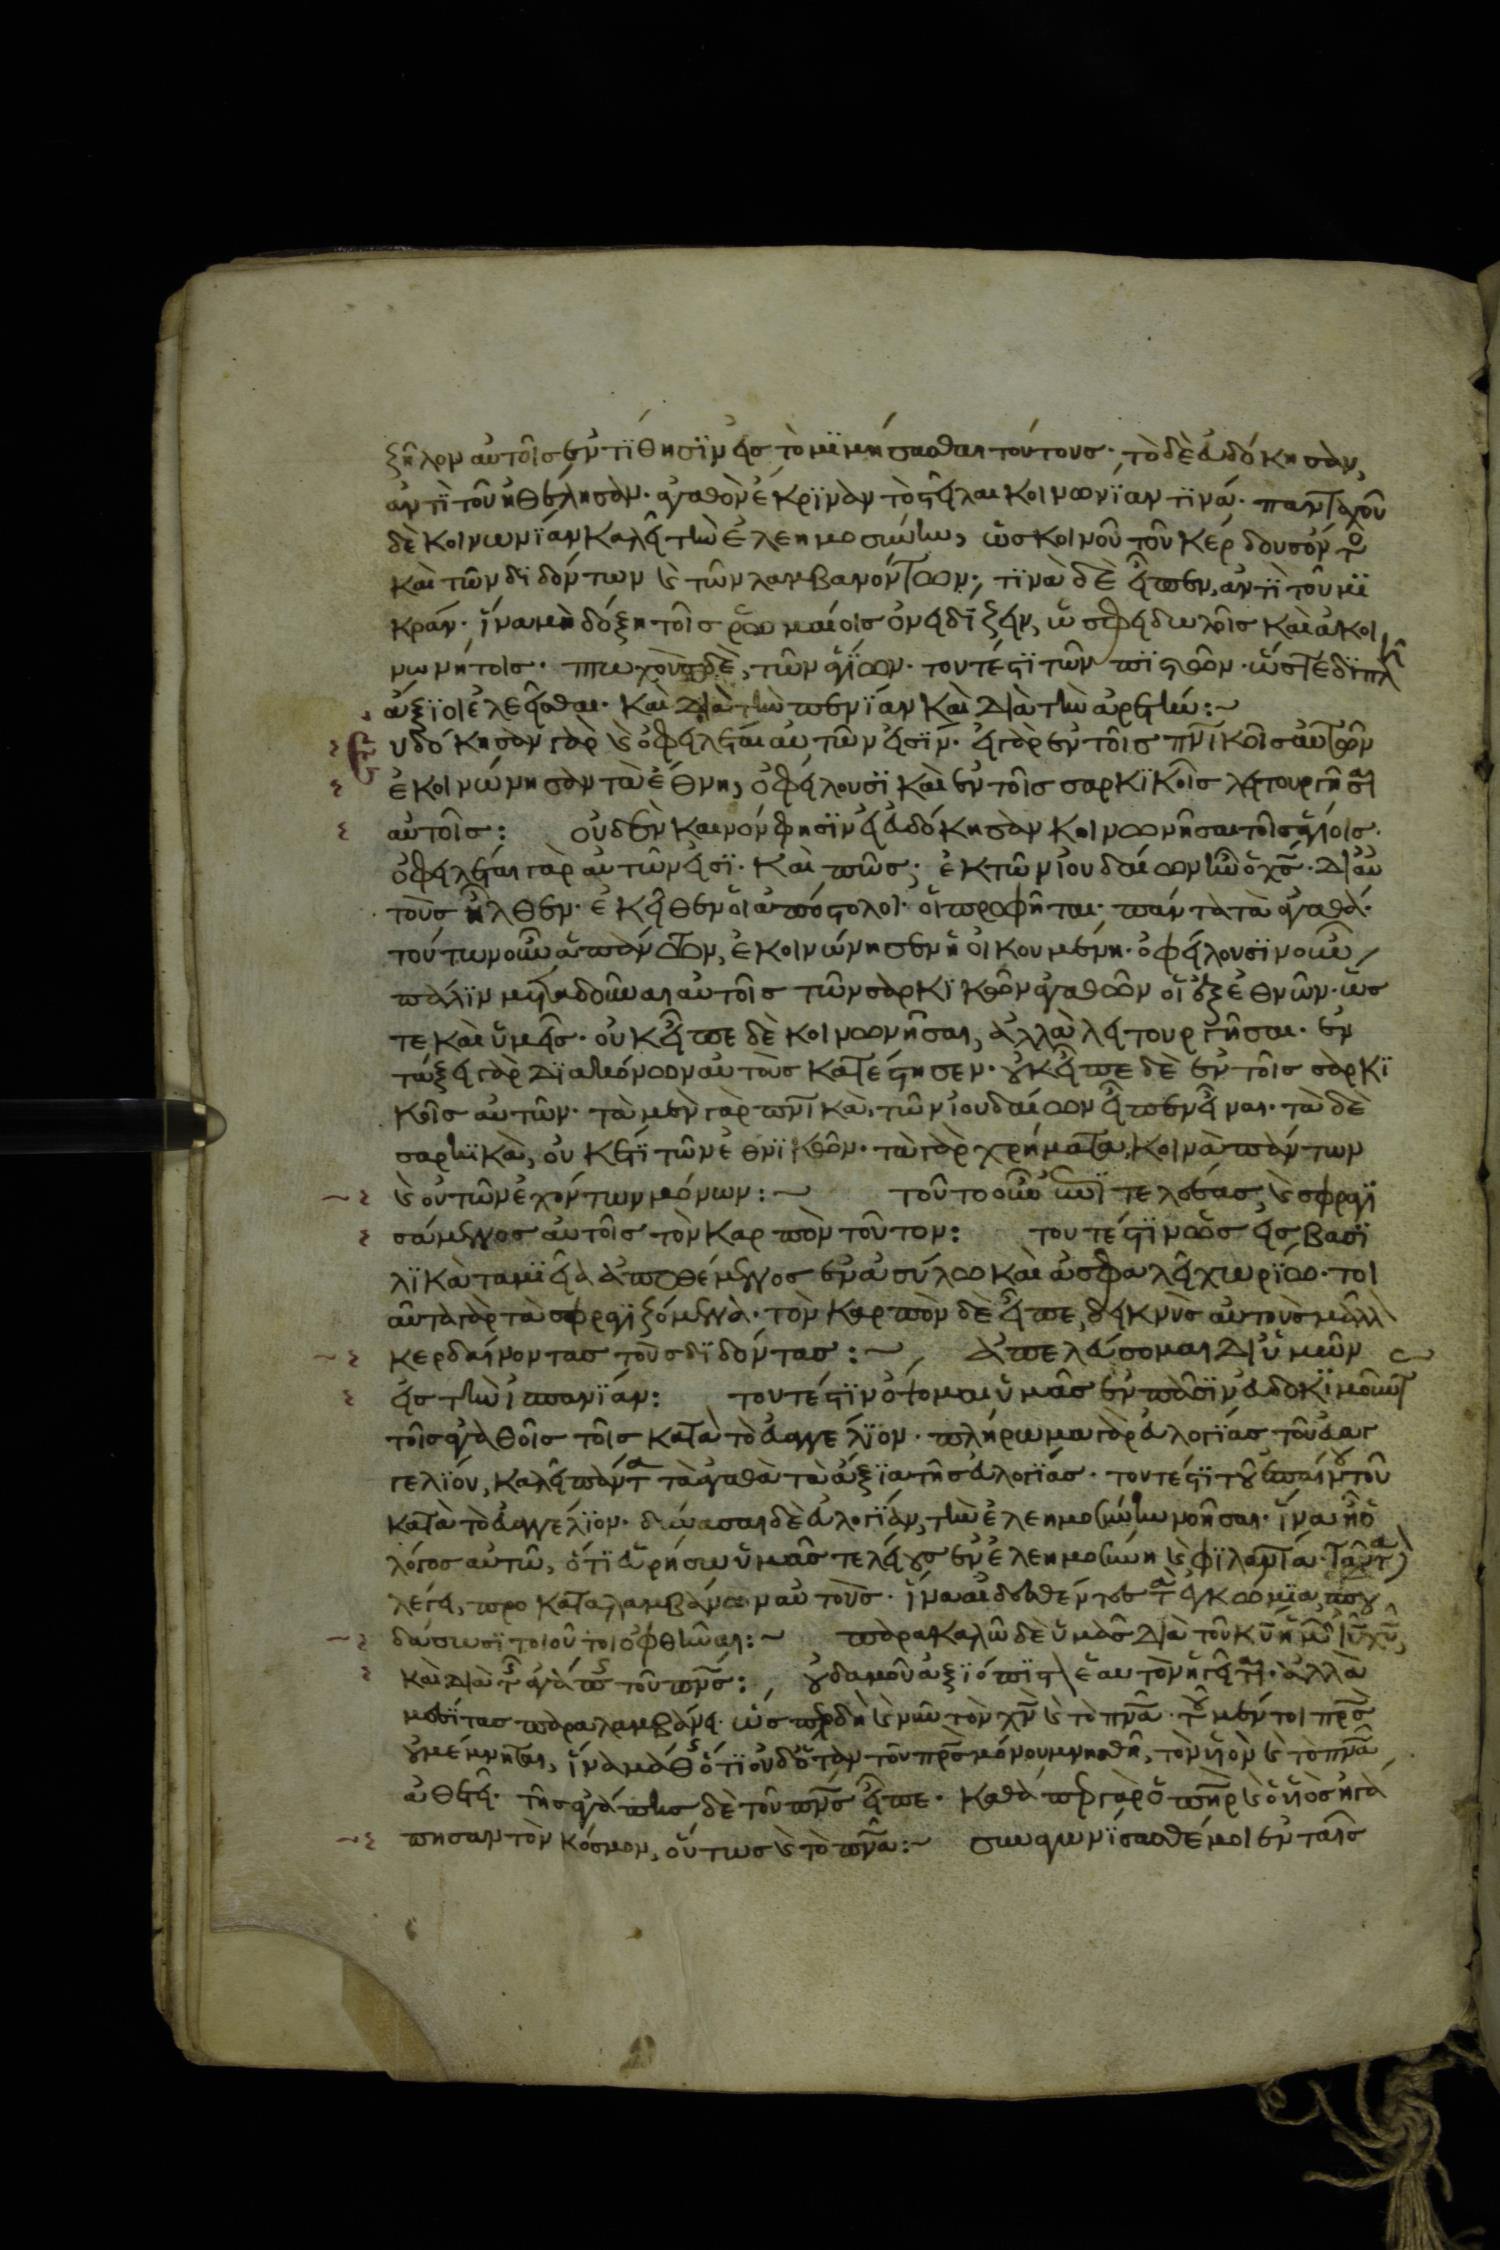 ζῆλον αὐτοῖς ἐντίθησϊν εἰς τὸ μϊμήσασθαι τούτους· τὸ δὲ εὐδόκησαν,
ἀντὶ τοῦ ἠθέλησαν· ἀγαθὸν ἔκρϊναν τὸ τελέσαι κοινωνίαν τϊνά· πανταχοῦ
δὲ κοινωνϊάν καλεῖ τὴν ἐλεημοσύνην, ὡς κοινοῦ τοῦ κέρδους ὄντο
καὶ τῶν δϊδόντων καὶ τῶν λαμβανόντων· τϊνὰ δὲ εἶπεν, ἀντὶ τοῦ μϊ
κράν· ἵνα μὴ δόξη τοῖς ῥωμαίοις ὀνειδίζειν, ὡς φειδωλοῖς καὶ ἀκοι
νωνήτοις· πτωχοὺς δὲ, τῶν ἁγίων· τουτέστι τῶν πϊστῶν· ὥστε διπλῆ
ἄξϊοι ἐλεεῖσθαι· καὶ διὰ τὴν πενϊάν καὶ διὰ τὴν ἀρετήν:~
Ευδόκησαν γὰρ καὶ ὀφειλέται αὐτῶν εἰσϊν· εἰ γὰρ ἐν τοῖς πνϊκοῖς αὐτῶν
ἐκοινώνησαν τὰ ἔθνη, ὀφείλουσϊ καὶ ἐν τοῖς σαρκϊκοῖς λειτουργῆσαι
αὐτοῖς: οὐδὲν καινόν φησϊν εἰ εὐδόκησαν κοινωνῆσαι τοῖς ἁγίοις·
ὀφειλέται γὰρ αὐτῶν εἰσϊ· καὶ πῶς; ἐκ τῶν ἰουδαίων ἦν ὁ χς· δι αὐ
τοὺς ἦλθεν· ἐκεῖθεν οἱ ἀπόστολοι· οἱ προφῆται· πάντα τὰ ἀγαθά·
τούτων οὖν ἁπάντων, ἐκοινώνησεν ἡ οἰκουμένη· ὀφείλουσϊν οὖν
πάλϊν μεταδοῦναι αὐτοῖς τῶν σαρκϊκῶν ἀγαθῶν οἱ ἐξ ἐθνῶν· ὥσ
τε καὶ ὑμεῖς· οὐκ εἶπε δὲ κοινωνῆσαι, ἀλλὰ λειτουργῆσαι· ἐν
τάξει γὰρ δϊακόνων αὐτοὺς κατέστησεν· οὐκ εἶπε δὲ ἐν τοῖς σαρκϊ
κοῖς αὐτῶν· τὰ μὲν γὰρ πνϊκὰ, τῶν ἰουδαίων εἶπεν εἶναι· τὰ δὲ
σαρκϊκὰ, οὐκέτϊ τῶν ἐθνϊκῶν· τὰ γὰρ χρήματα, κοινὰ πάντων
καὶ οὐ τῶν ἐχόντων μόνων:~ τοῦτο οὖν ἐπϊτελέσας, καὶ σφραγϊ
σάμενος αὐτοῖς τὸν καρπὸν τοῦτον: τουτέστϊν ὡς εἰς βασϊ
λϊκὰ ταμϊεῖα ἀποθέμενος ἐν ἀσύλω καὶ ἀσφαλεῖ χωρϊω· τοι
αῦτα γὰρ τὰ σφραγϊζόμενα· τὸν καρπὸν δὲ εἶπε, δεικνὺς αὐτοὺς μᾶλλ
κερδαίνοντας τοὺς δϊδόντας:~ ἀπελεύσομαι δι ὑμῶν
εἰς τὴν ἱσπανϊάν: τουτέστϊν ὄψομαι ὑμᾶς ἐν πᾶσϊν εὐδοκϊμοῦντ
τοῖς ἀγαθοῖς τοῖς κατὰ τὸ εὐαγγελϊον· πλήρωμα γὰρ εὐλογίας τοῦ εὐαγ
γελϊου, καλεῖ πάντα τὰ ἀγαθὰ τὰ ἄξϊα τῆς εὐλογίας· τουτέστϊ τοῦ ἐπαίνου τοῦ
κατὰ τὸ εὐαγγέλϊον· δύνασαι δὲ εὐλογίαν, τὴν ἐλεημοσύνην νοῆσαι· ἵνα ἦ ὁ
λόγος αὐτῶ, ὅτϊ εὑρήσω ὑμᾶς τελείους ἐν ἐλεημοσύνη καὶ φϊλαντία· ταῦτα
λέγει, προκαταλαμβάνων αὐτούς· ἵνα αἰδεσθέντες τὰ ἐγκώμϊα, σπου
δάσωσϊ τοιοῦτοι ὀφθῆναι:~ παρακαλῶ δὲ ὑμᾶς διὰ τοῦ κυ ἡμῶν ιυ χυ,
καὶ διὰ τῆς ἀγάπης τοῦ πνς: οὐδαμοῦ ἀξϊόπϊστον ἑαυτὸν ἡγεῖται· ἀλλὰ
μεσϊτας παραλαμβάνει· ὡς που δὴ καὶ νῦν τὸν χν καὶ τὸ πνα· τοῦ μέντοι πρς
οὐ μέμνηται, ἵνα μάθης ὅτϊ οὐδ ὅταν τοῦ πρς μόνου μνησθῆ, τὸν υἱὸν καὶ τὸ πνα
ἀθετεῖ· τῆς ἀγάπης δὲ τοῦ πνς εἶπε· καθάπερ γὰρ ὁ πηρ καὶ ὁ υἱὸς ἠγά
πησαν τὸν κόσμον, οὕτως καὶ τὸ πνα:~ συναγωνϊσασθέ μοι ἐν ταῖς